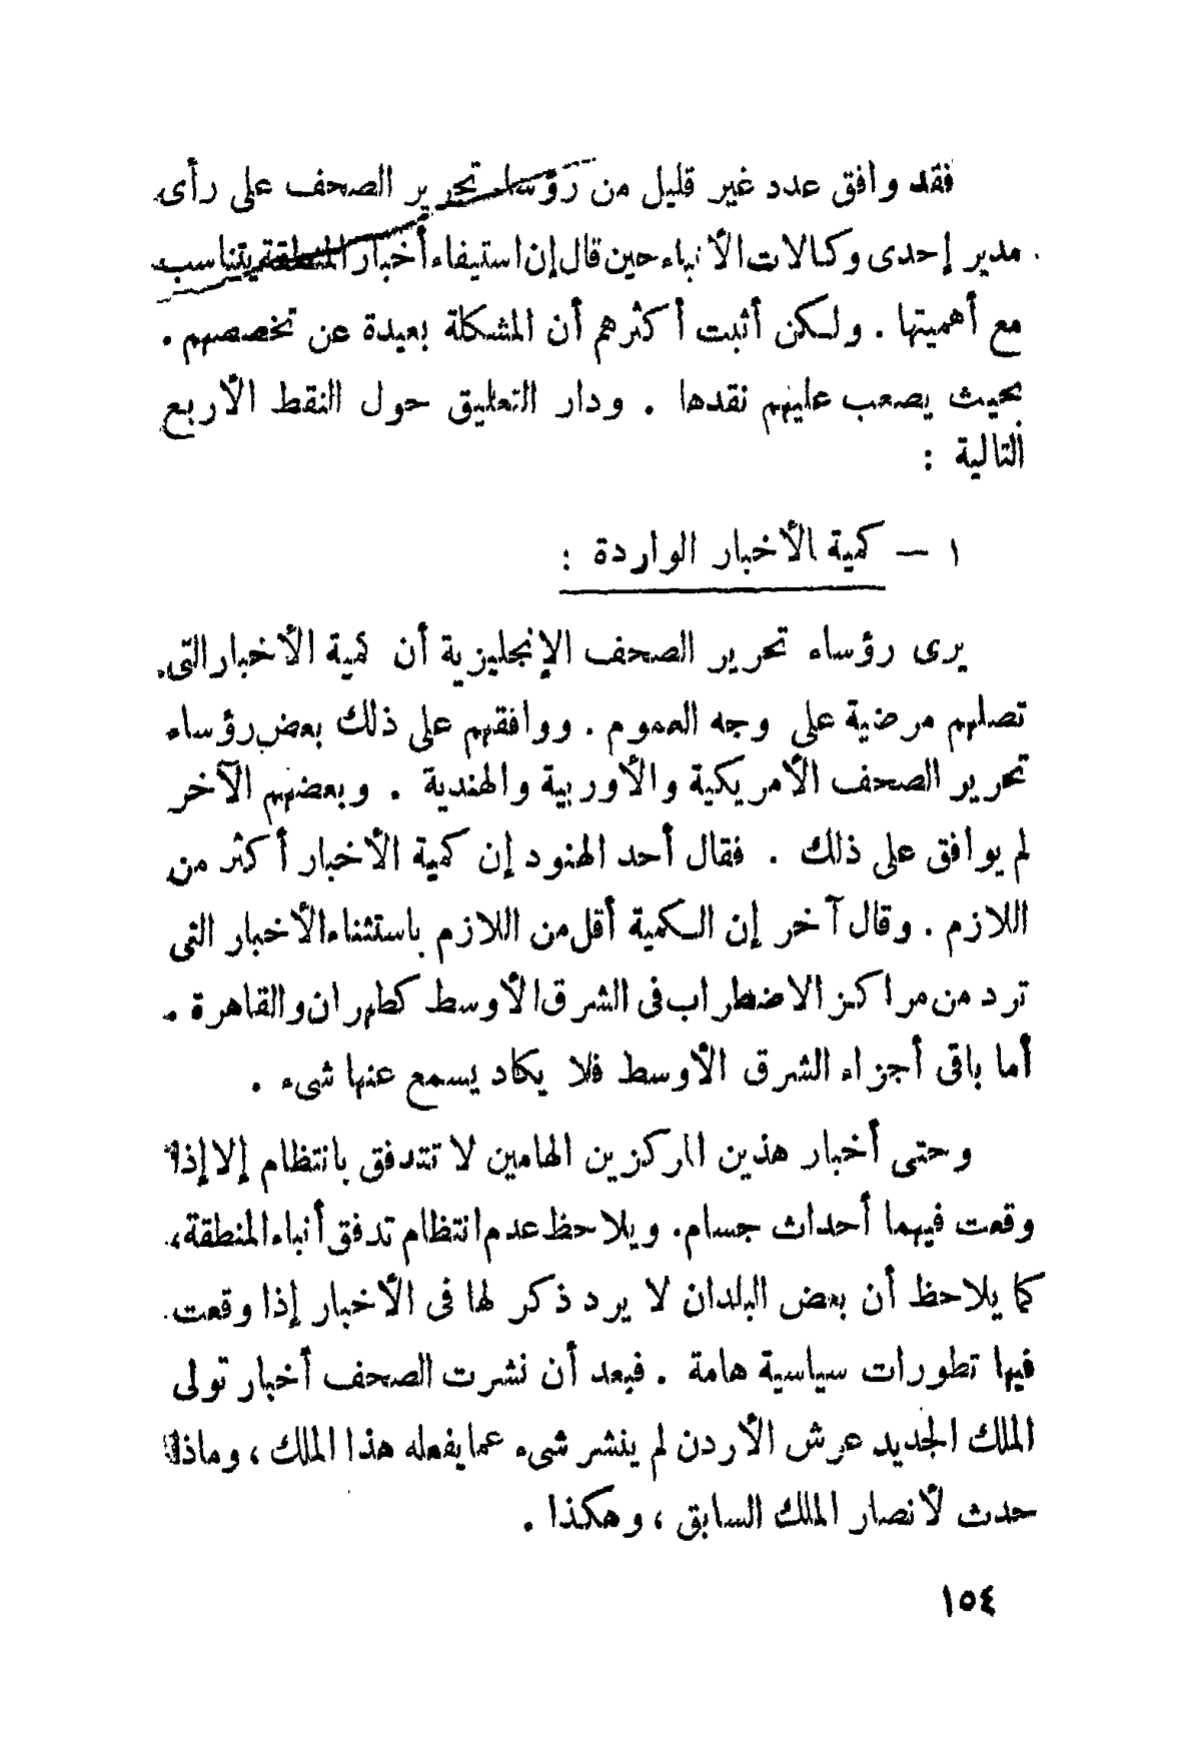 فقد وافق عدد غير قليل من رؤساء تحرير الصحف على رأى
مدير إحدى وكالات الأنباء حين قال إن استيفاء أخبار المنطقة يتناسب
مع أهميتها . ولكن أثبت أكثرهم أن المشكلة بعيدة عن تخصصهم .
بحيث يصعب عليهم نقدها . ودار التعليق حول النقط الأربع
التالية :
١ — كمية الأخبار الواردة :
يرى رؤساء تحرير الصحف الإنجليزية أن كمية الأخبار التى
تصلهم مرضية على وجه العموم . ووافقهم على ذلك بعض رؤساء
تحرير الصحف الأمريكية والأوربية والهندية . وبعضهم الآخر
لم يوافق على ذلك . فقال أحد الهنود إن كمية الأخبار أكثر من
اللازم . وقال آخر إن الكمية أقل من اللازم باستثناء الأخبار التى
ترد من مراكز الاضطراب فى الشرق الأوسط كطهران والقاهرة .
أما باقى أجزاء الشرق الأوسط فلا يكاد يسمع عنها شىء .
وحتى أخبار هذين المركزين الهامين لا تتدفق بانتظام إلا إذا
وقعت فيهما أحداث جسام. ويلاحظ عدم انتظام تدفق أنباء المنطقة،
كما يلاحظ أن بعض البلدان لا يرد ذكر لها فى الأخبار إذا وقعت
فيها تطورات سياسية هامة . فبعد أن نشرت الصحف أخبار تولى
الملك الجديد عرش الأردن لم ينشر شىء عما يفعله هذا الملك ، وماذا
حدث لأنصار الملك السابق ، وهكذا .
١٥٤